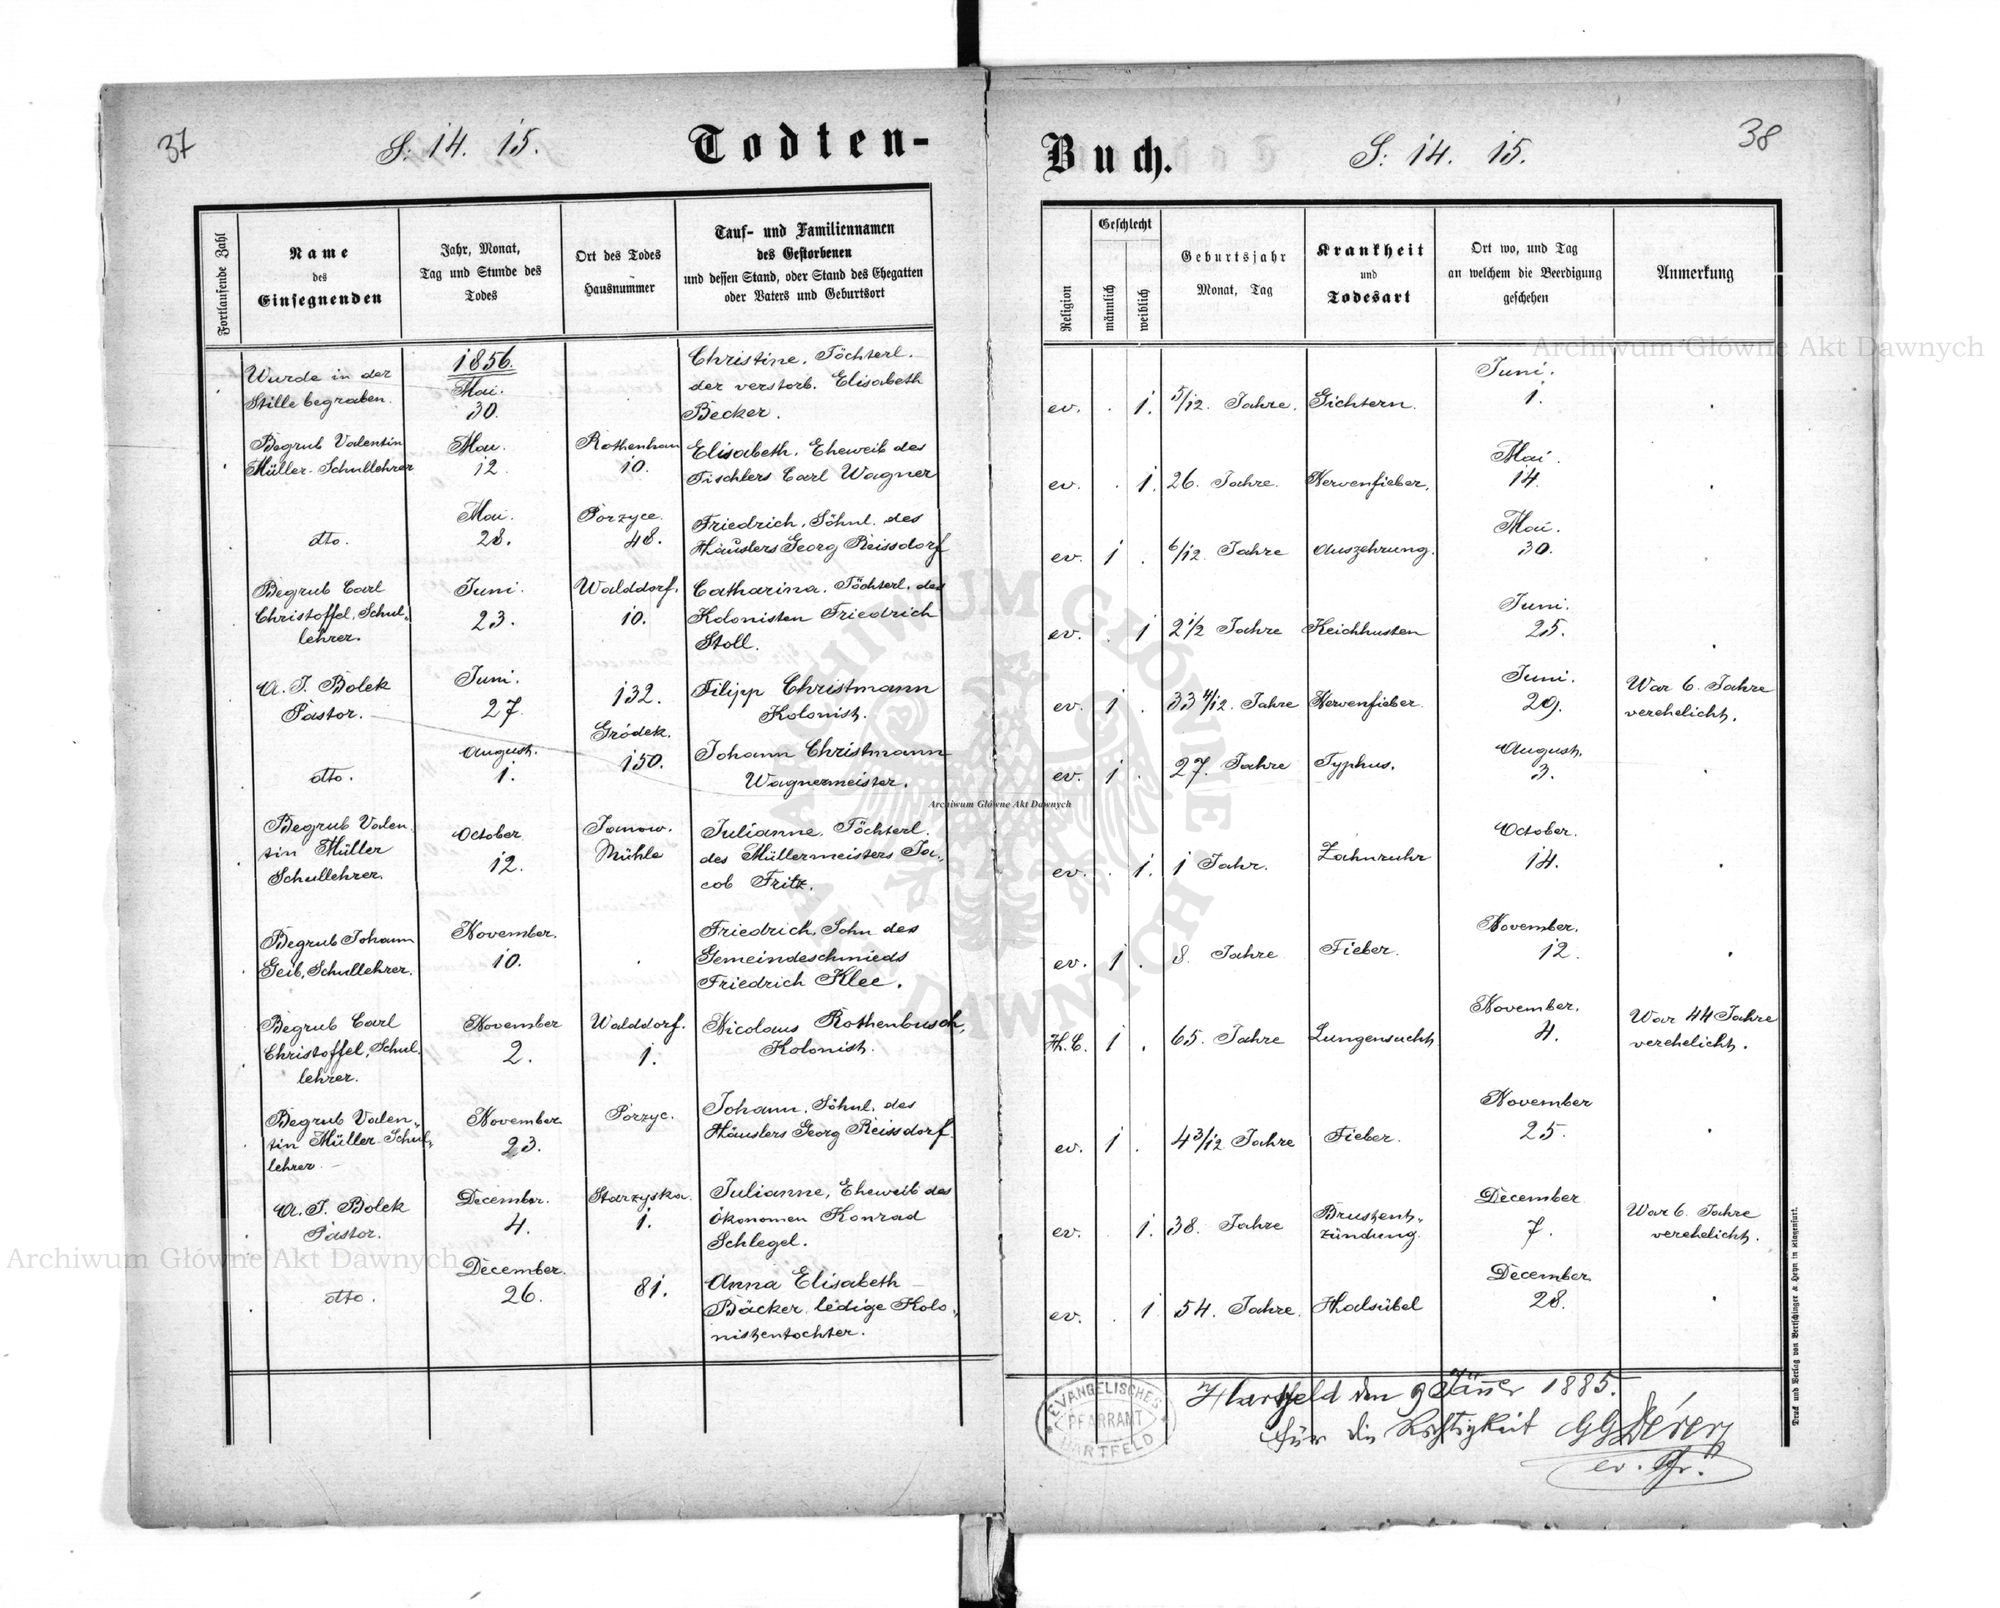 37
S: 14. 15.
Todten-
Fortlaufende Zahl
Name
des
Einsegnenden
Jahr, Monat,
Tag und Stunde des
Todes
Ort des Todes
Hausnummer
Tauf- und Familiennamen
des Gestorbenen
und dessen Stand, oder Stand des Ehegatten
oder Vaters und Geburtsort
Wurde in der
Stille begraben.
1856.
Mai.
30.
Christine, Töchterl.
der verstorb. Elisabeth
Becker.
Begrub Valentin
Müller. Schullehrer
Mai.
12.
Rothenhan
10.
Elisabeth, Eheweib des
Tischlers Carl Wagner
dto.
Mai.
28.
Porzyce.
48.
Friedrich, Söhnl. des
Häuslers Georg Reissdorf
Begrub Carl
Christoffel, Schul-
lehrer.
Juni.
23.
Walddorf.
10.
Catharina, Töchterl. des
Kolonisten Friedrich
Stoll.
A. J. Bolek
Pastor.
Juni.
27.
132.
Filipp Christmann
Kolonist.
dto.
August.
1.
Gródek.
150.
Johann Christmann
Wagnermeister.
Begrub Valen
tin Müller
Schullehrer.
October
12.
Janow.
Mühle
Julianne, Töchterl.
des Müllermeisters Ja„
cob Fritz.
Begrub Johann
Geib, Schullehrer.
November.
10.
Friedrich, Sohn des
Gemeindeschmieds
Friedrich Klee.
Begrub Carl
Christoffel, Schul
lehrer.
November
2.
Walddorf.
1.
Nicolaus Rothenbusch,
Kolonist.
Begrub Valen„
tin Müller Schul„
lehrer.
November
23.
Porzyc.
Johann, Söhnl. des
Häuslers Georg Reissdorf.
A. J. Bolek
Pastor.
December.
4.
Starzyska.
1.
Julianne, Eheweib des
Ökonomen Konrad
Schlegel.
dto.
December.
26.
81.
Anna Elisabeth
Bäcker, ledige Kolo„
nistentochter.
38
Buch.
S: 14. 15.
Religion
Geschlecht
männlich
weiblich
Geburtsjahr
Monat, Tag
Krankheit
und
Todesart
Ort wo, und Tag
an welchem die Beerdigung
geschehen
Anmerkung
ev. . 1. 5/12. Jahre. Gichtern. Juni. 1.
ev. . 1. 26. Jahre. Nervenfieber. Mai. 14.
ev. 1 . 6/12. Jahre Auszehrung. Mai. 30.
ev. . 1 2 1/2 Jahre Keichhusten Juni. 25.
ev. 1 . 33 4/12. Jahre Nervenfieber. Juni. 29. War 6. Jahre
verehelicht.
ev. 1 . 27. Jahre Typhus. August. 3.
ev. . 1. 1 Jahr. Zahnruhr October. 14.
ev. 1 . 8. Jahre Fieber. November. 12.
H. C. 1 . 65. Jahre Lungensucht November. 4. War 44 Jahre
verehelicht.
ev. 1 . 4 3/12 Jahre Fieber. November 25.
ev. . 1. 38. Jahre Brustent„
zündung. December 7. War 6. Jahre
verehelicht.
ev. . 1 54. Jahre. Halsübel December 28.
Hartfeld den 9 Jänner 1885.
Für die Richtigkeit
ev. Pfr.
EVANGELISCHES
PFARRAMT
HARTFELD
Druck und Verlag von Bertschinger & Heyn in Klagenfurt.
Archiwum Główne Akt Dawnych
Archiwum Główne Akt Dawnych
Archiwum Główne Akt Dawnych
ARCHIWUM GŁÓWNE AKT DAWNYCH